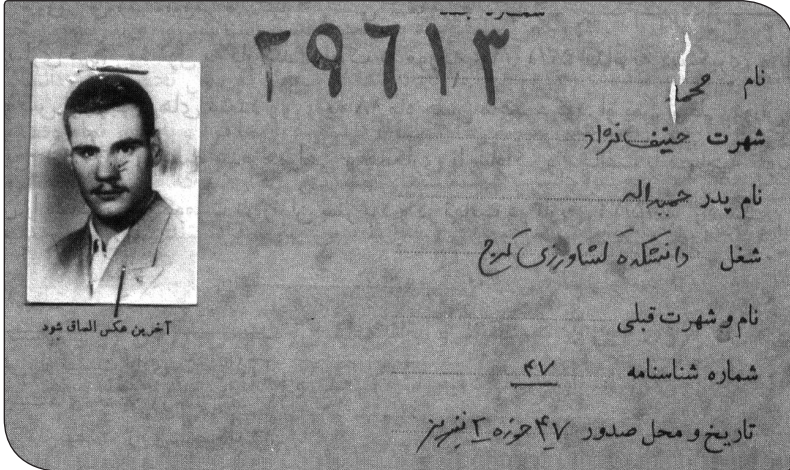 ۲۹۶۱۳
نام محمد
شهرت حنیف نژاد
نام پدر حمداله
شغل دانشکده کشاورزی کرج
نام و شهرت قبلی
شماره شناسنامه ۴۷
تاریخ و محل صدور ۴۷ حوزه ۲ تبریز
آخرین عکس الصاق شود